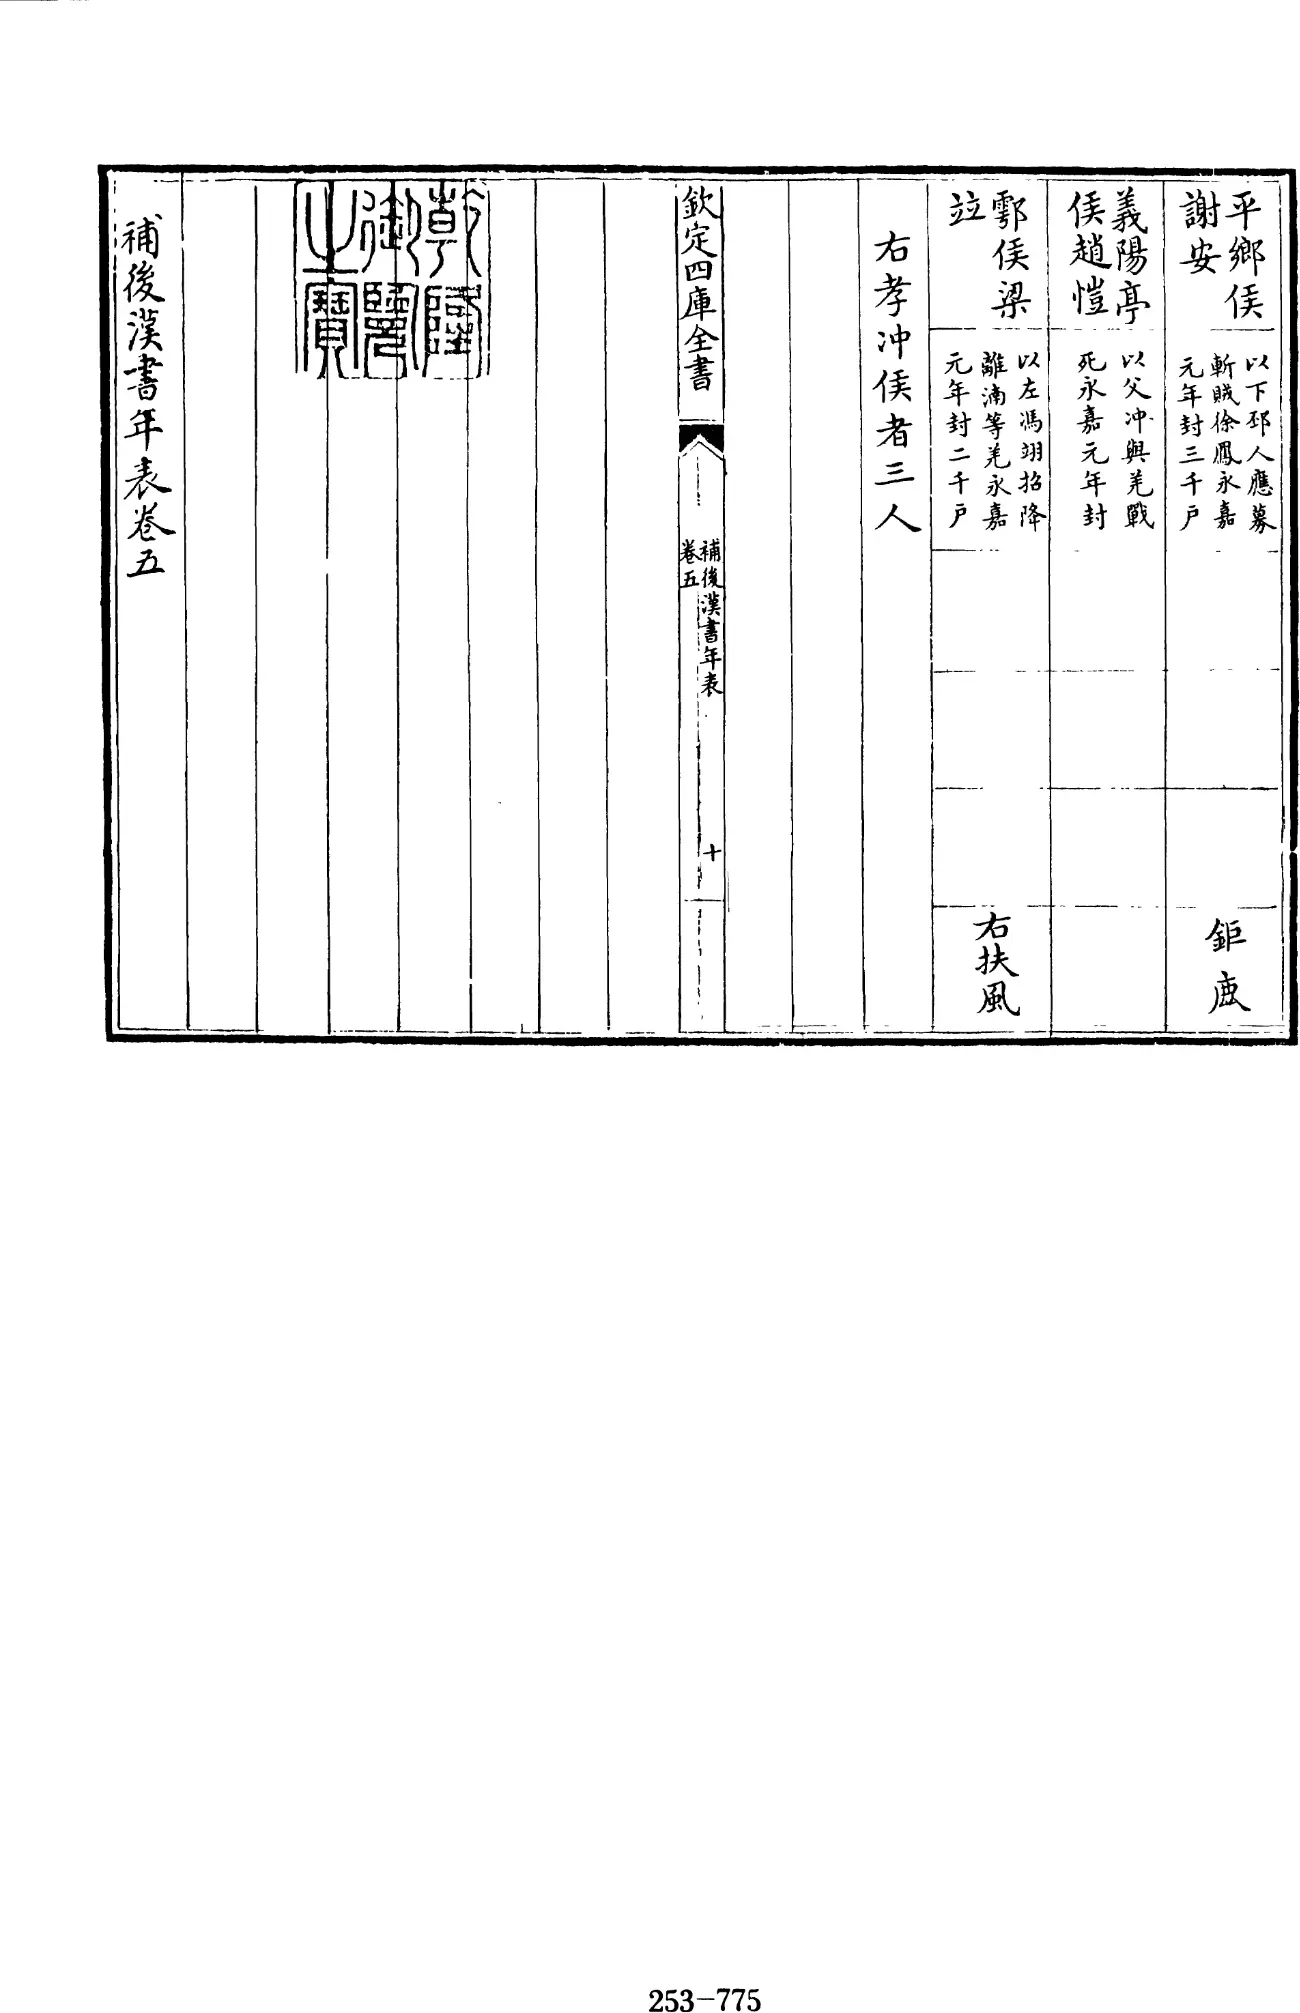 平鄉侯
謝安
以下邳人應募
斬賊徐鳳永嘉
元年封三千戶
鉅鹿
義陽亭
侯趙愷
以父冲與羌戰
死永嘉元年封
鄠侯梁
竝
以左馮翊招降
離湳等羌永嘉
元年封二千戶
右扶風
右孝冲侯者三人
欽定四庫全書
補後漢書年表
卷五
十
乾隆
御覽
之寶
補後漢書年表卷五
253-775